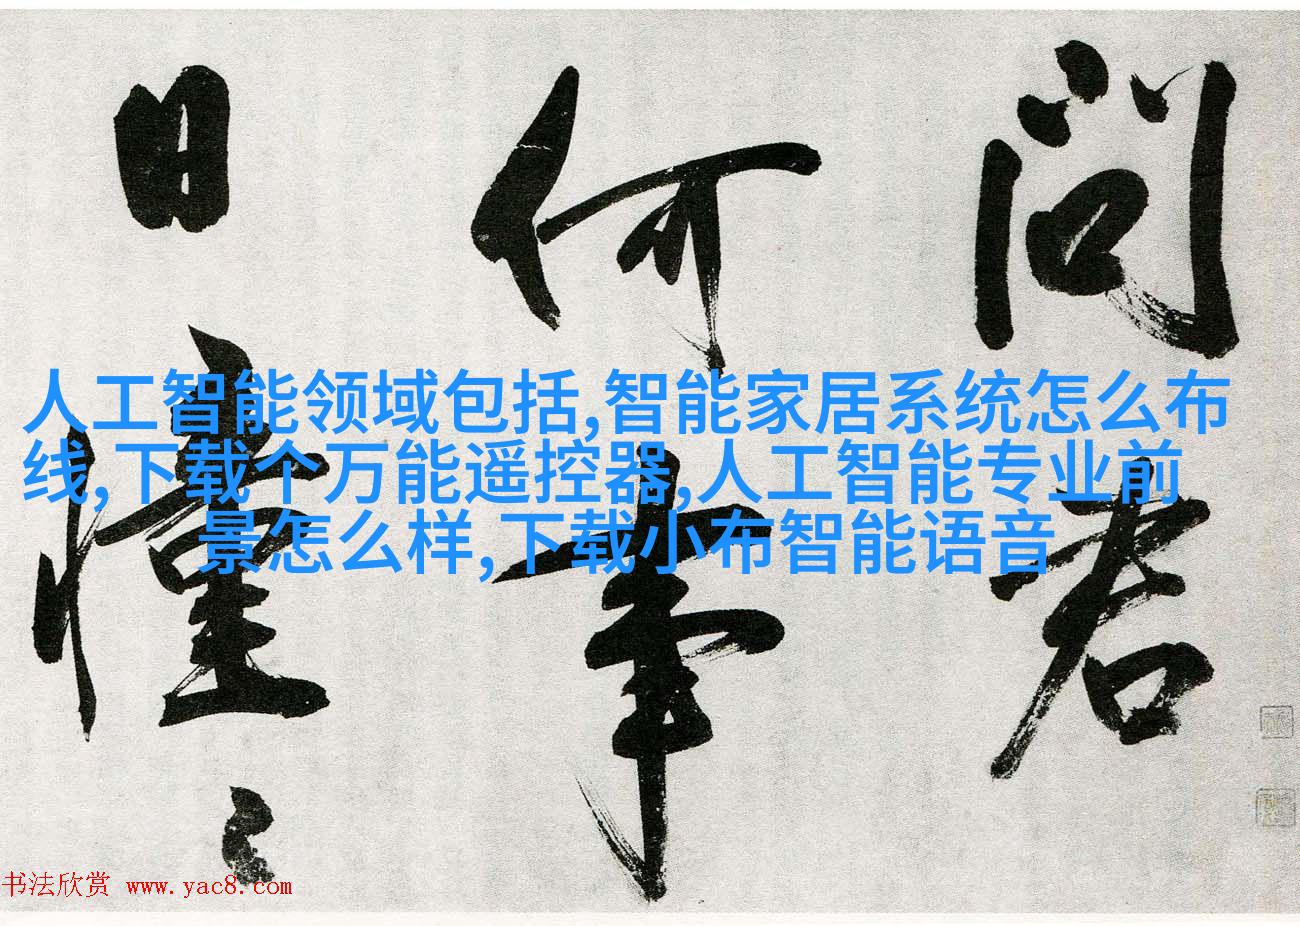 问君
何事
日憧〻
人工智能领域包括,智能家居系统怎么布
线,下载个万能遥控器,人工智能专业前
景怎么样,下载小布智能语音
书法欣赏 www.yac8.com